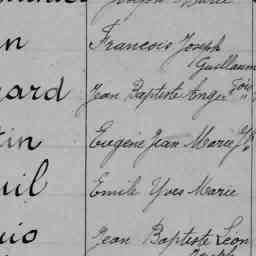 Joseph Marie
n François Joseph
Guillaum
ard Jean Baptiste Ange
tin Eugène Jean Marie
uil Emile Yves Marie
uio Jean Baptiste Léon
Joseph